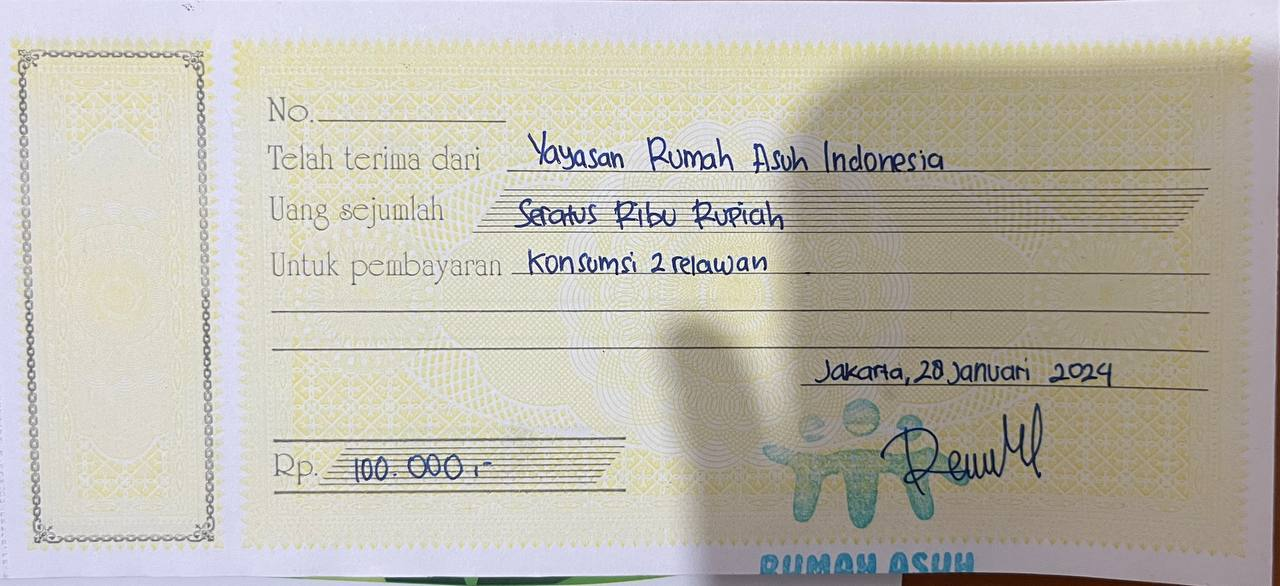 No.
Telah terima dari Yayasan Rumah Asuh Indonesia
Uang sejumlah Seratus Ribu Rupiah
Untuk pembayaran Konsumsi 2 relawan
Jakarta, 28 Januari 2024
Rp. 100.000,-
RUMAH ASUH